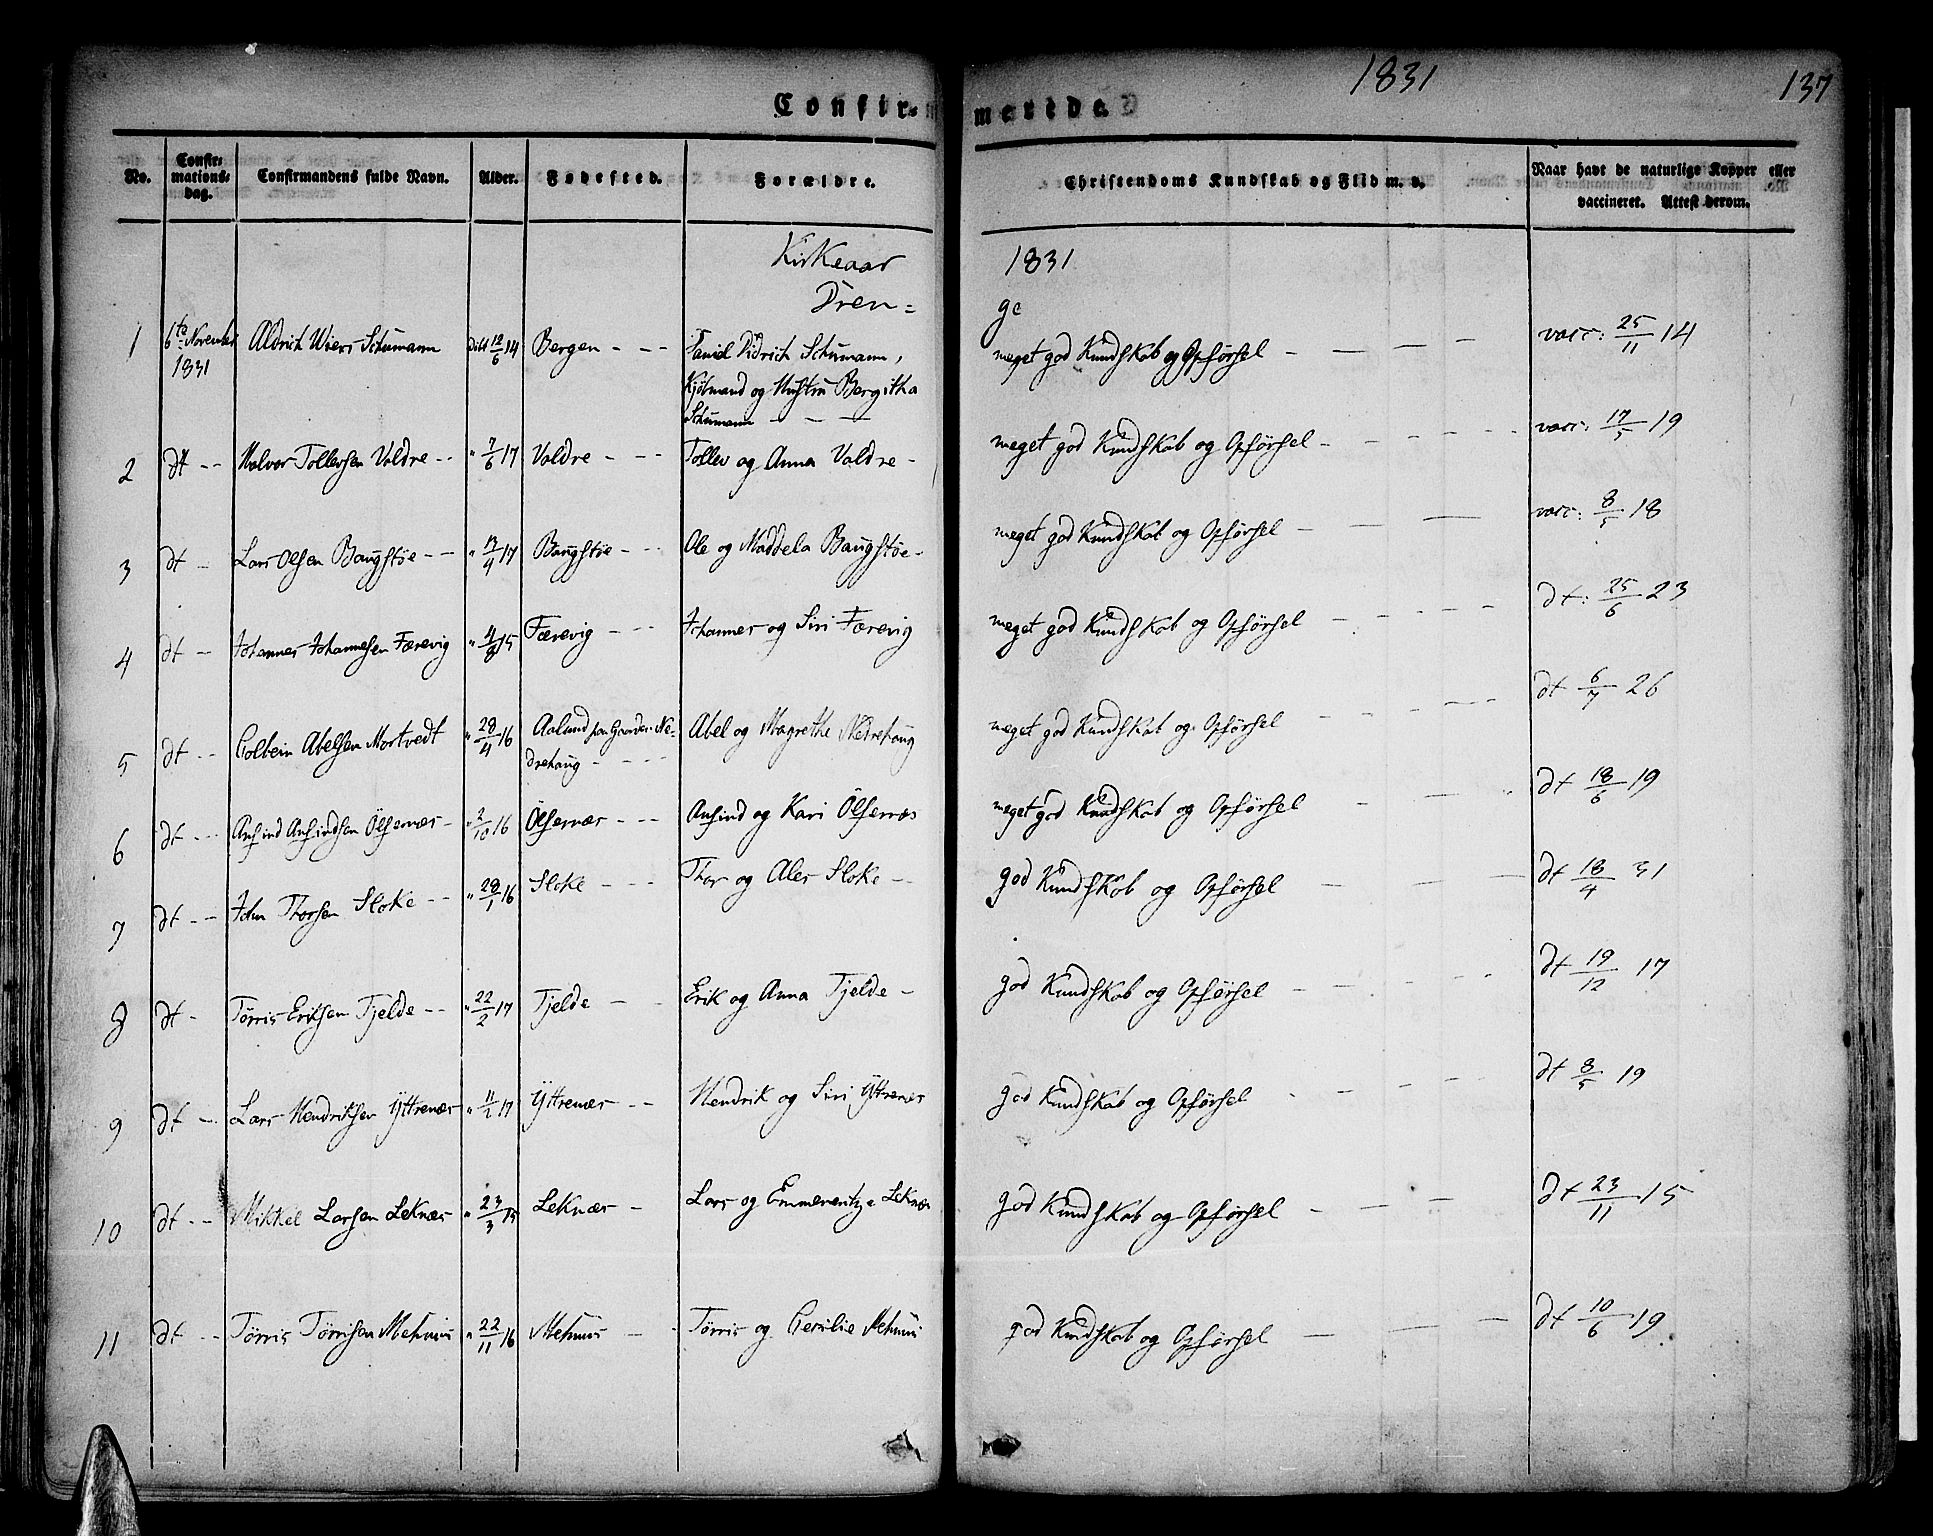 1831
137
Confir- merede.
No. Confir-mations-dag. Confirmandens fulde Navn. Alder. Fødested. Forældre. Christendoms Kundskab og Flid m. v. Naar havt de naturlige Kopper eller vaccineret. Attest derom.
Kirkeaar 1831
Dren= ge
1 6te November 1831 Aldrich Wiers Schumann 12/6 14 Bergen - - - Didrich Schumann, Kjøbmand og Hustru Bergitha Schumann - - - meget god Kundskab og Opførsel - - - - vacc: 25/11 14
2 dt - - Halvor Tollevsen Valdre - - " 7/6 17 Valdre - - - Tollev og Anna Valdre - meget god Kundskab og Opførsel - - - - - vacc: 17/5 19
3 dt - Lars Olsen Baugstøe - - " 13/4 17 Baugstøe - - Ole og Maddela Baugstøe - meget god Kundskab og Opførsel - - - - vacc: 8/5 18
4 dt - Johannes Johannesen Færevig " 4/8 15 Færevig - - - Johannes og Siri Færevig meget god Kundskab og Opførsel - - - - - dt: 25/6 23
5 dt - - Colbein Abelsen Mortvedt " 28/4 16 Aalund paa Gaarden Ne-drehaug - - - - Abel og Magrethe Nedrehaug meget god Kundskab og Opførsel - - - - - dt 6/7 26
6 dt - - Anfind Anfindsen Ølfernæs - " 2/10 16 Ølfernæs - - - Anfind og Kari Ølfernæs meget god Kundskab og Opførsel - - - dt 18/6 19
7 dt - - John Thorsen Sloke - - " 28/1 16 Sloke - - - Thor og Ales Sloke - god Kundskab og Opførsel - - - dt 18/4 31
8 dt - Tørris Eriksen Tjelde - - " 22/2 17 Tjelde - - Erik og Anna Tjelde - god Kundskab og Opførsel - - - - dt 19/12 17
9 dt - Lars Hendriksen Yttrenæs " 11/2 17 Yttrenæs - - Hendrik og Siri Yttrenæs god Kundskab og Opførsel - - - - - dt 8/5 19
10 dt - - Mikkel Larsen Leknæs " 23/3 15 Leknæs - Lars og Emmerentze Leknæs god Kundskab og Opførsel - - - dt 23/11 15
11 dt - - Tørris Tørrisen Mehuus " 22/11 16 Mehuus - - Tørris og Cecilie Mehuus god Kundskab og Opførsel - - - dt 10/6 19